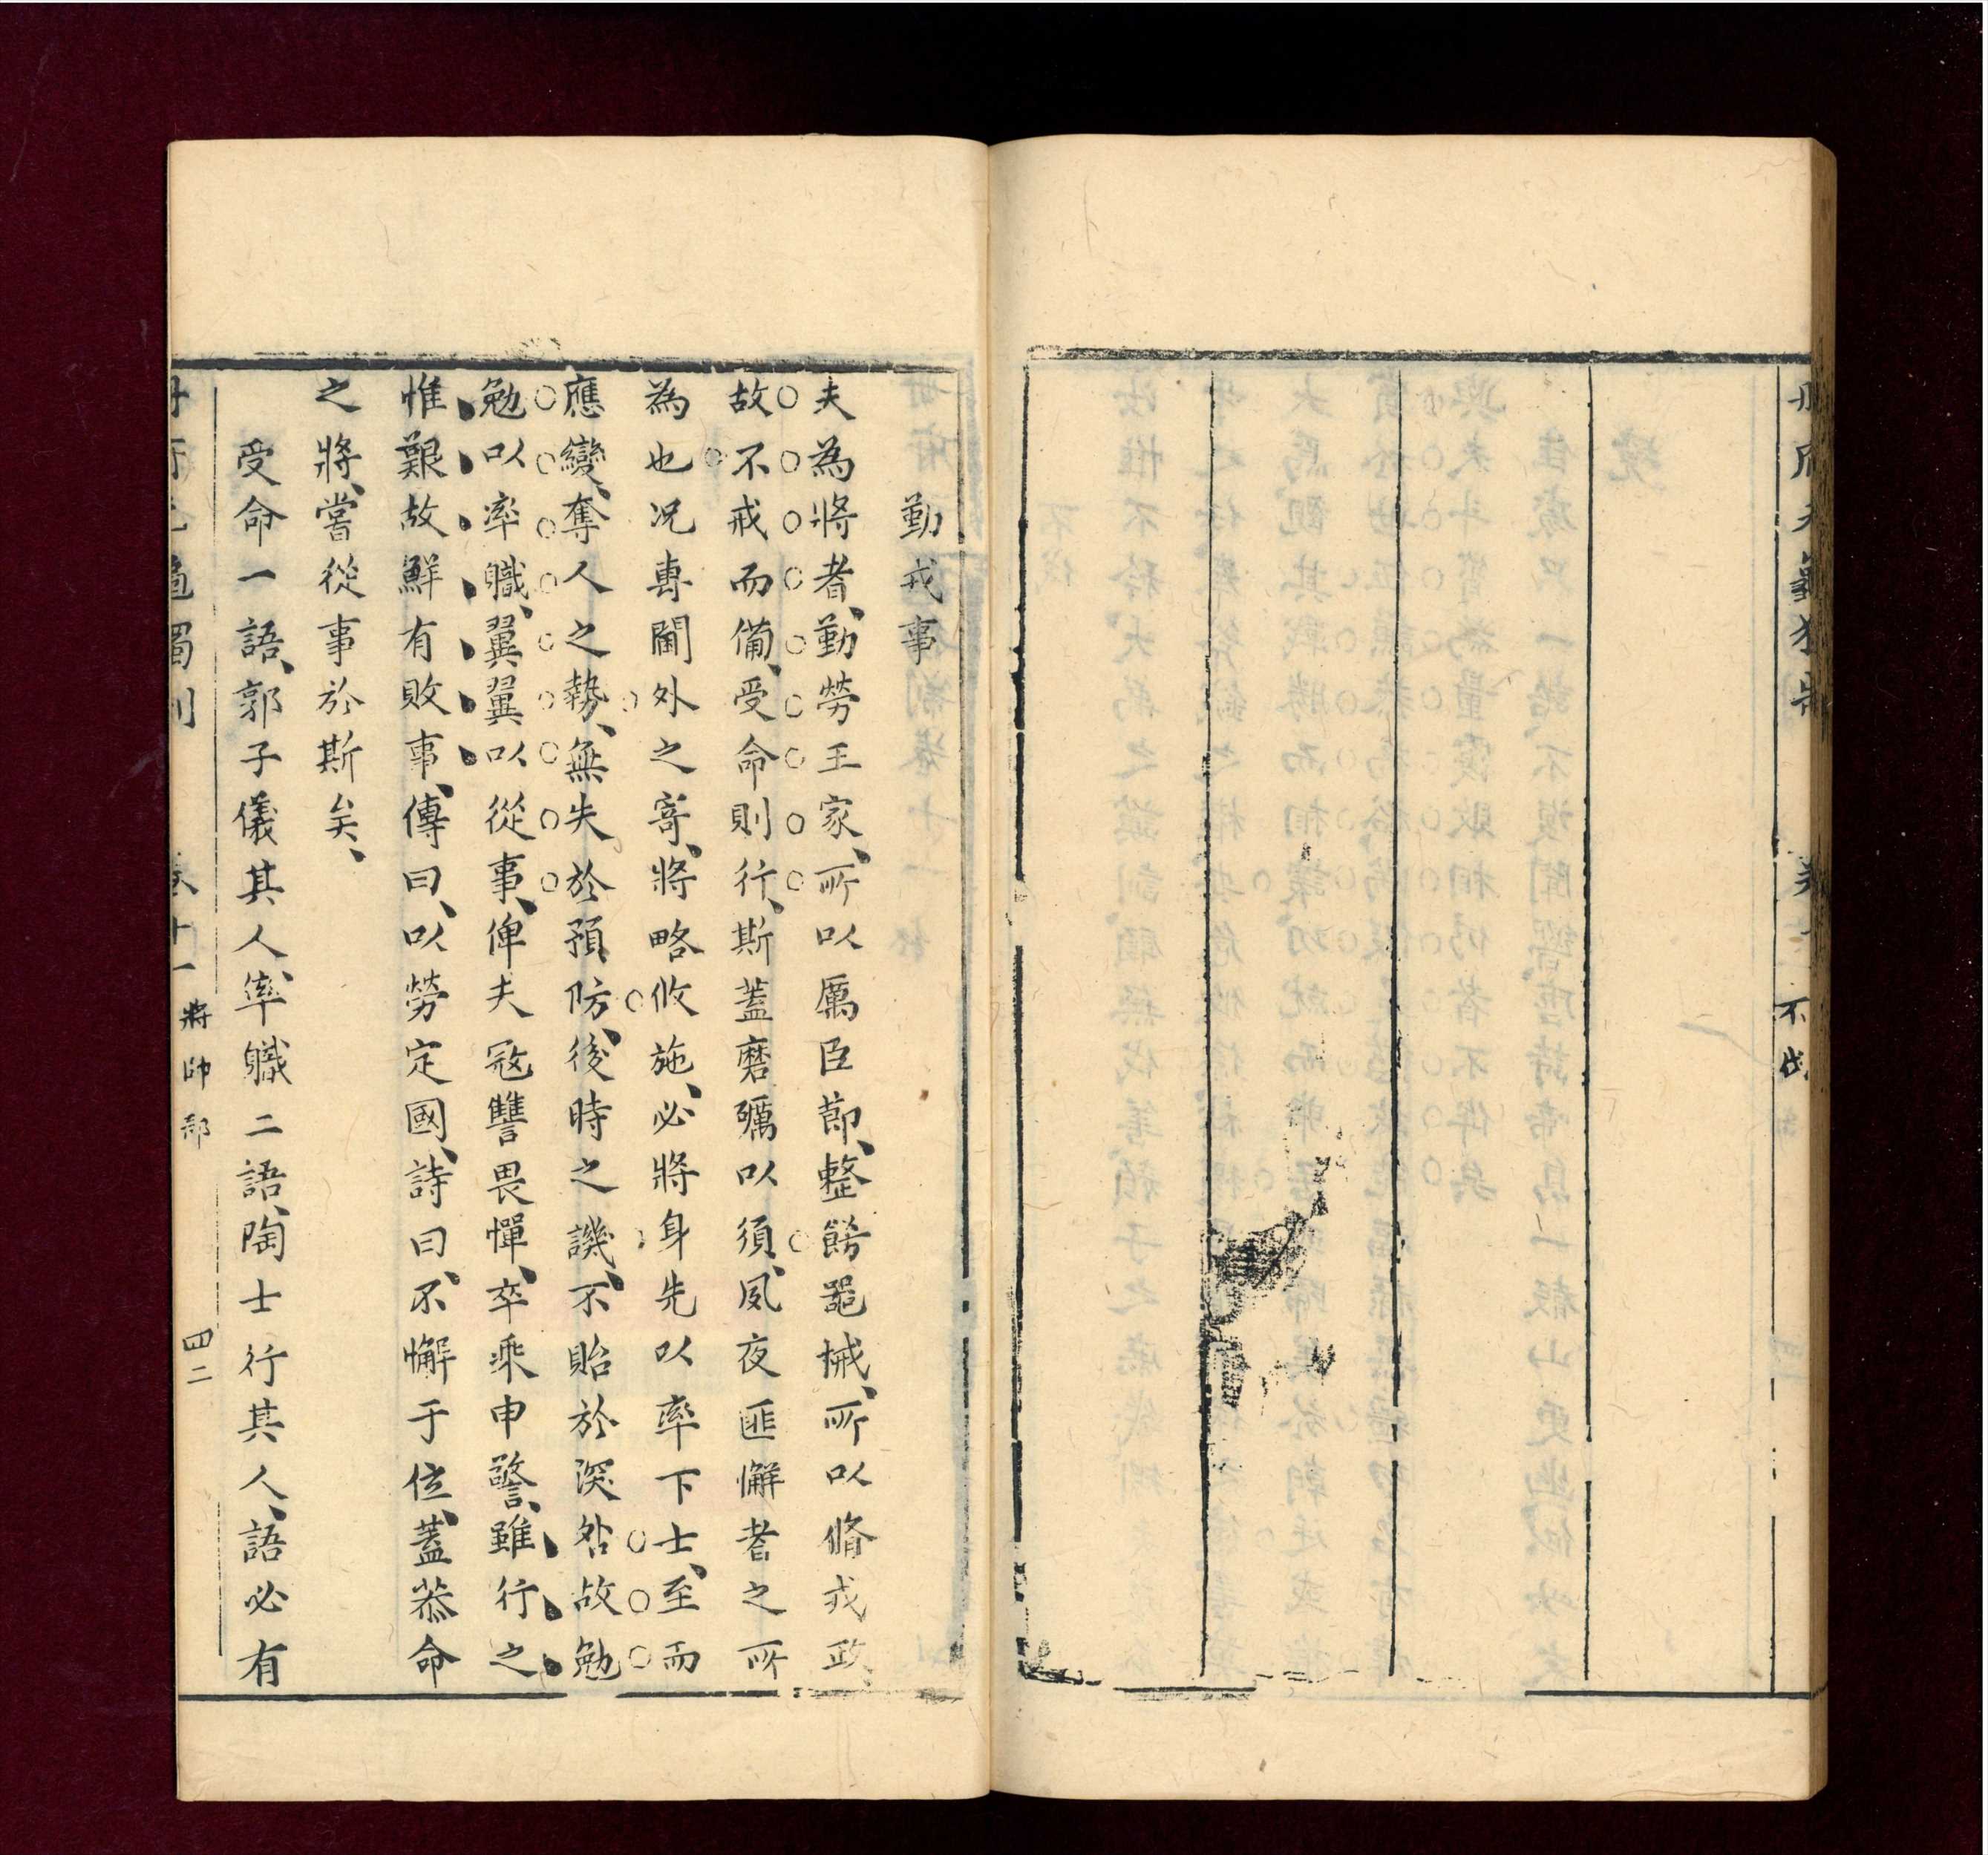 不伐
勤戎事
夫為將者、勤勞王家、所以厲臣節、整飭噐械、所以脩戎政、
故不戒而備、受命則行、斯蓋磨礪以須、夙夜匪懈者之所
為也况專閫外之寄、將略攸施、必將身先以率下士、至而
應變、奪人之勢、無失於預防、後時之譏、不貽於深咎故勉
勉以率職、翼翼以從事、俾夫冦讐畏憚、卒乘申警、雖行之
惟艱故鮮有敗事、傳曰、以勞定國、詩曰、不懈于位、蓋恭命
之將、嘗從事於斯矣、
受命一語、郭子儀其人、率職二語、陶士行其人、語必有
卷十一 將帥部 四二